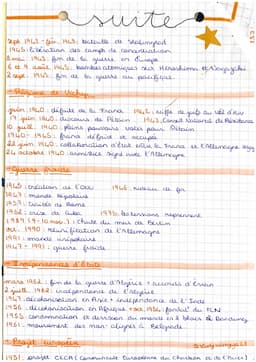 suite
sept 1942 - fév. 1943: bataille de Stalingrad
1945: libération des camps de concentration
8 mai 1945: fin de la guerre en Europe
6 et 9 août 1945: bombes atomiques sur Hiroshima et Nagasaki
2 sept. 1945: fin de la guerre au pacifique
Régime de Vichy
juin 1940: défaite de la France 1942: rafle du vel d'hiv
17 juin 1940: discours de Pétain 1943: Conseil National de Résistance
10 juill. 1940: pleins pouvoirs votés pour Pétain
1940-1945: France défaite et occupée
22 juin 1940: collaboration d'État entre la France et l'Allemagne
24 octobre 1940: armistice signé avec l'Allemagne
Guerre froide
1945: création de l'ONU 1946: rideau de fer
1947: monde bipolaire
1957: traité de Rome
1962: crise de Cuba
1989: 9-10 nov.: chute du mur de Berlin
oct. 1990: réunification de l'Allemagne
1991: monde unipolaire
1947-1991: guerre froide
Indépendances d'États
mars 1962: fin de la guerre d'Algérie + accords d'Evian
2 juill. 1962: indépendance de l'Algérie
1947: décolonisation en Asie + indépendance de l'Inde
1956: décolonisation en Afrique + oct. 1954: fondat° du FLN
1955: conférence de Bandung
1961: mouvement des non-alignés à Belgrade
Projet européen
1951: projet CECA (Communauté Européenne du Charbon et de l'Acier)